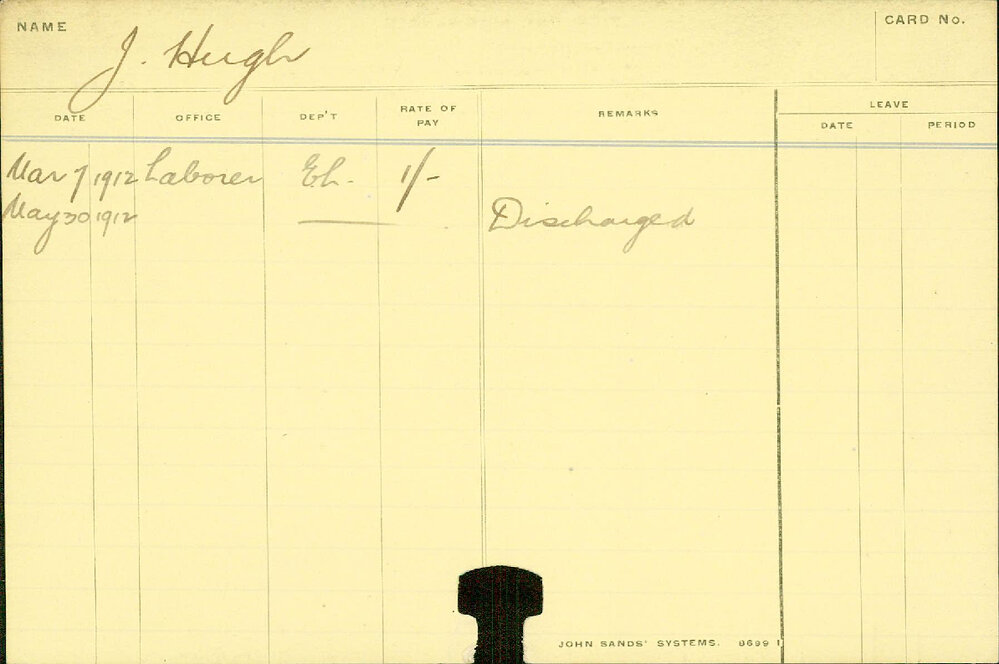 NAME J. Hugh CARD No.
DATE OFFICE DEP'T RATE OF PAY REMARKS LEAVE
DATE PERIOD
Mar 7 1912 Laborer Eh. 1/-
May 30 1912 —— Discharged
JOHN SANDS' SYSTEMS. 8699